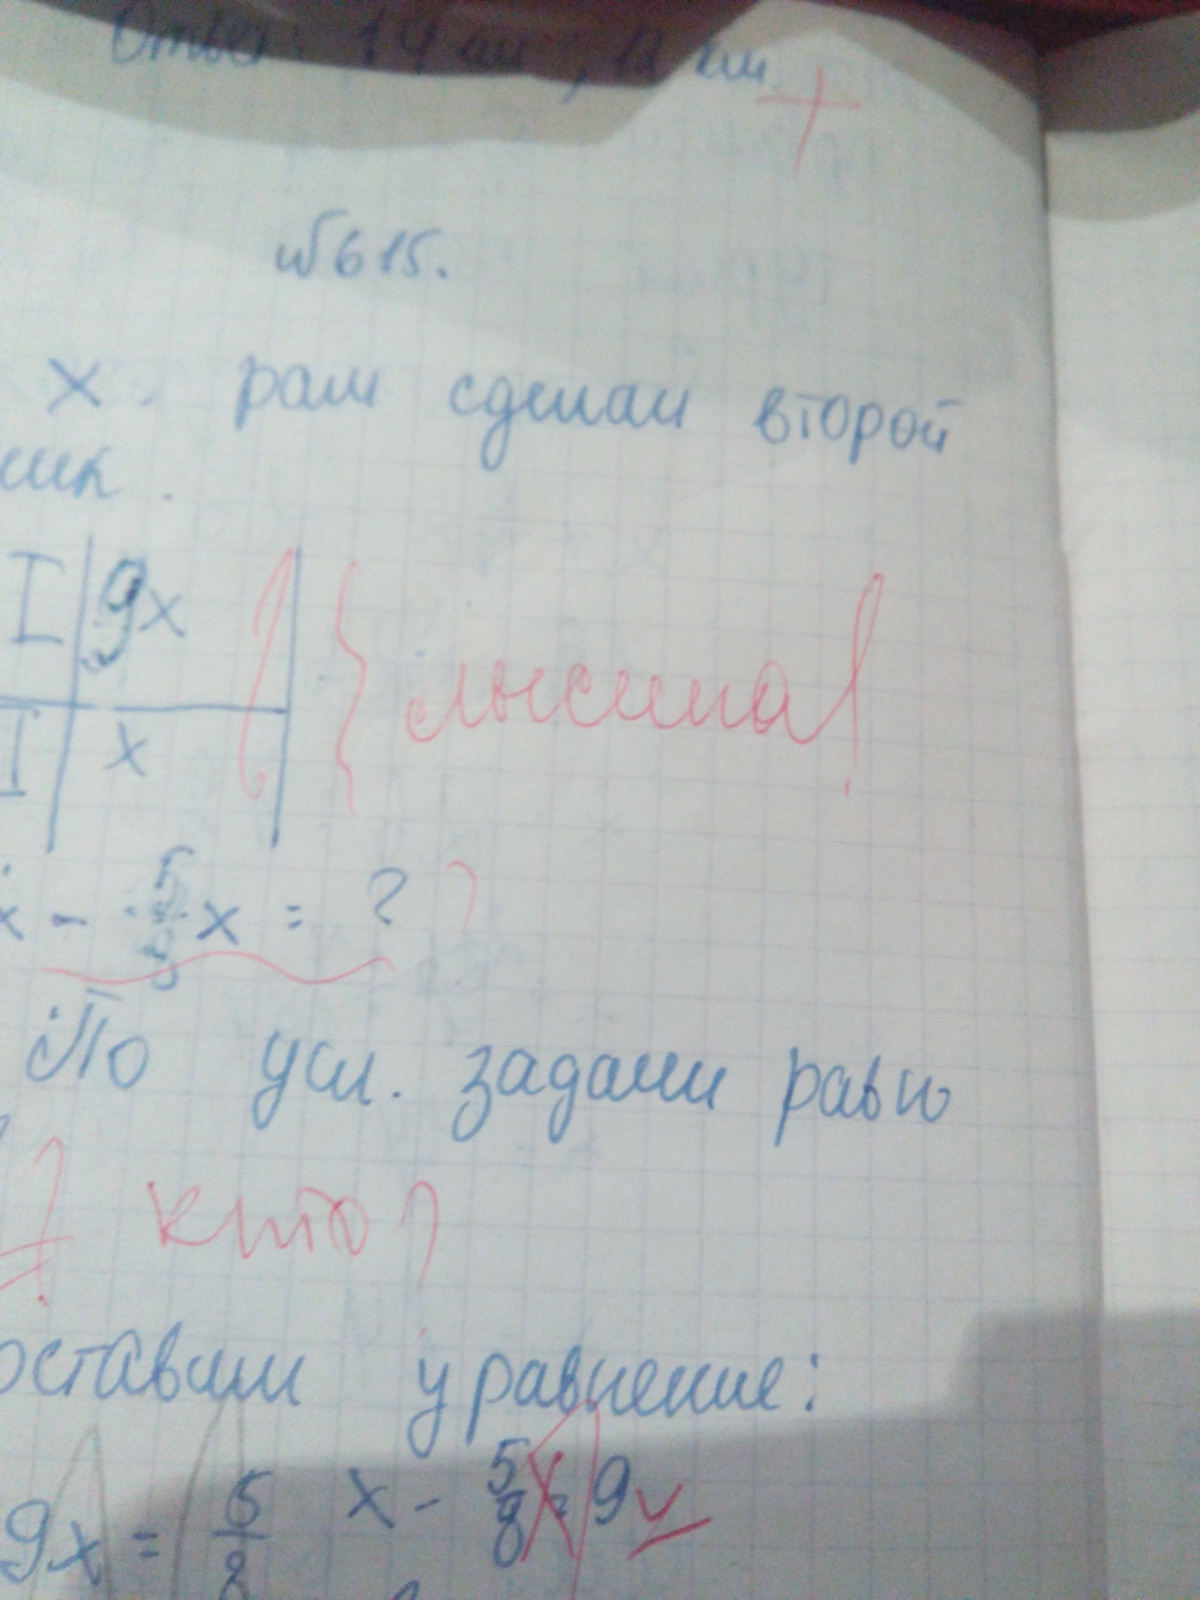 Ответ: 14 км, 12 км.
№615.
x - рам сделал второй
щик.
I 9x
I x
x - 5/8 x = ? ?
По усл. задачи равн
? кто?
оставим уравнение:
9x = 5/8 x - 5/8 x = 9